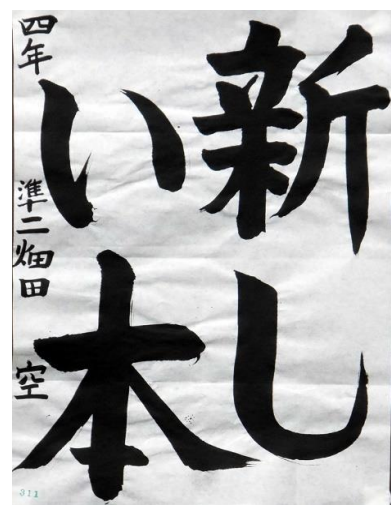 新し
い本
四年 準二 畑田 空
311